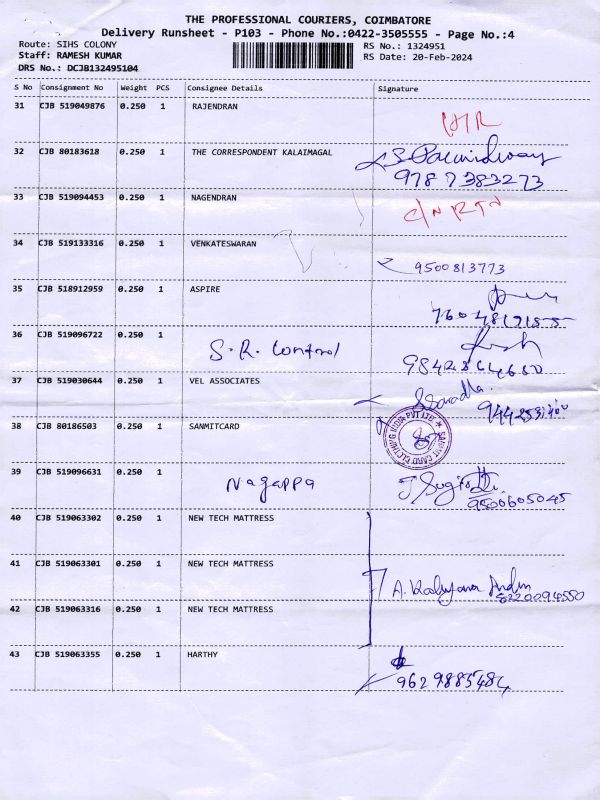 THE PROFESSIONAL COURIERS, COIMBATORE
Delivery Runsheet - P103 - Phone No.:0422-3505555 - Page No.:4
Route: SIHS COLONY
RS No.: 1324951
Staff: RAMESH KUMAR
RS Date: 20-Feb-2024
DRS No.: DCJB132495104
S No Consignment No Weight PCS Consignee Details Signature
31 CJB 519049876 0.250 1 RAJENDRAN
32 CJB 80183618 0.250 1 THE CORRESPONDENT KALAIMAGAL
9787383273
33 CJB 519094453 0.250 1 NAGENDRAN
C/N RTN
34 CJB 519133316 0.250 1 VENKATESWARAN
9500813773
35 CJB 518912959 0.250 1 ASPIRE
36 CJB 519096722 0.250 1
S.R. Control
37 CJB 519030644 0.250 1 VEL ASSOCIATES
38 CJB 80186503 0.250 1 SANMITCARD
39 CJB 519096631 0.250 1
Nagappa
9500605045
40 CJB 519063302 0.250 1 NEW TECH MATTRESS
41 CJB 519063301 0.250 1 NEW TECH MATTRESS
8220094550
42 CJB 519063316 0.250 1 NEW TECH MATTRESS
43 CJB 519063355 0.250 1 HARTHY
9629885484